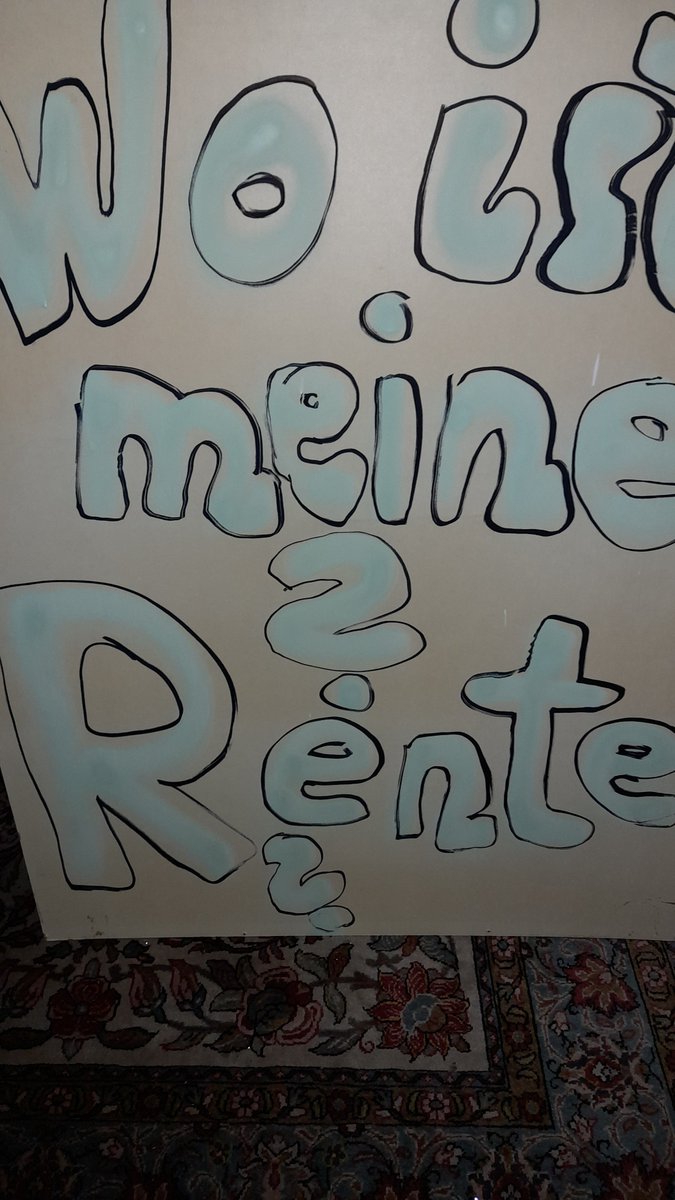 Wo ist
meine
?
Rente
?